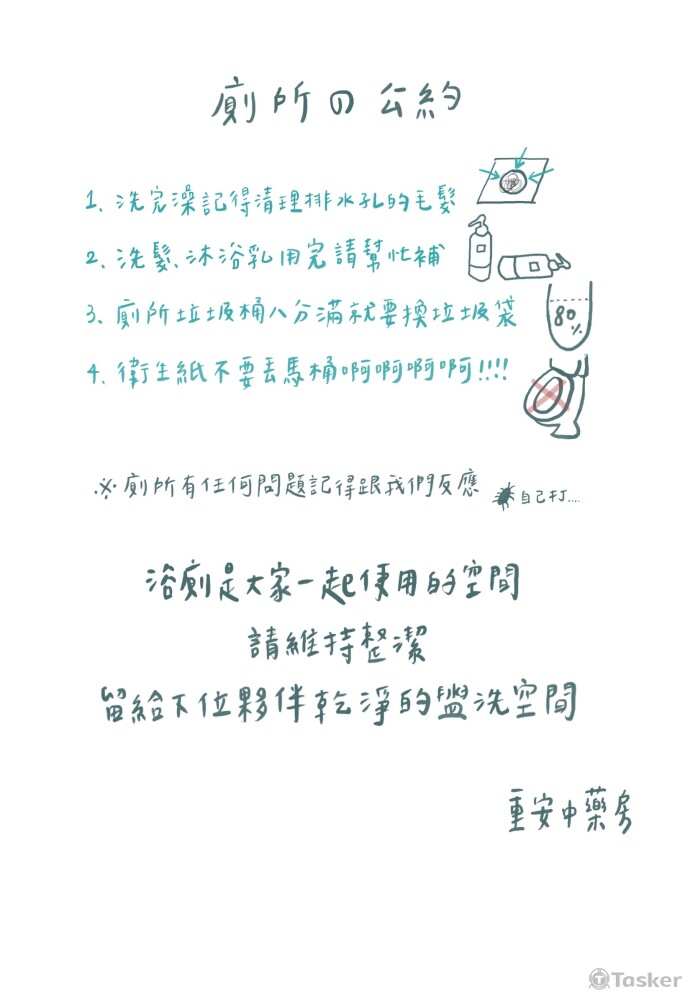 廁所の公約
1、洗完澡記得清理排水孔的毛髮
2、洗髮、沐浴乳用完請幫忙補
3、廁所垃圾桶八分滿就要換垃圾袋
80%
4、衛生紙不要丟馬桶啊啊啊啊!!!!
※廁所有任何問題記得跟我們反應
自己打....
浴廁是大家一起使用的空間
請維持整潔
留給下位夥伴乾淨的盥洗空間
重安中藥房
Tasker